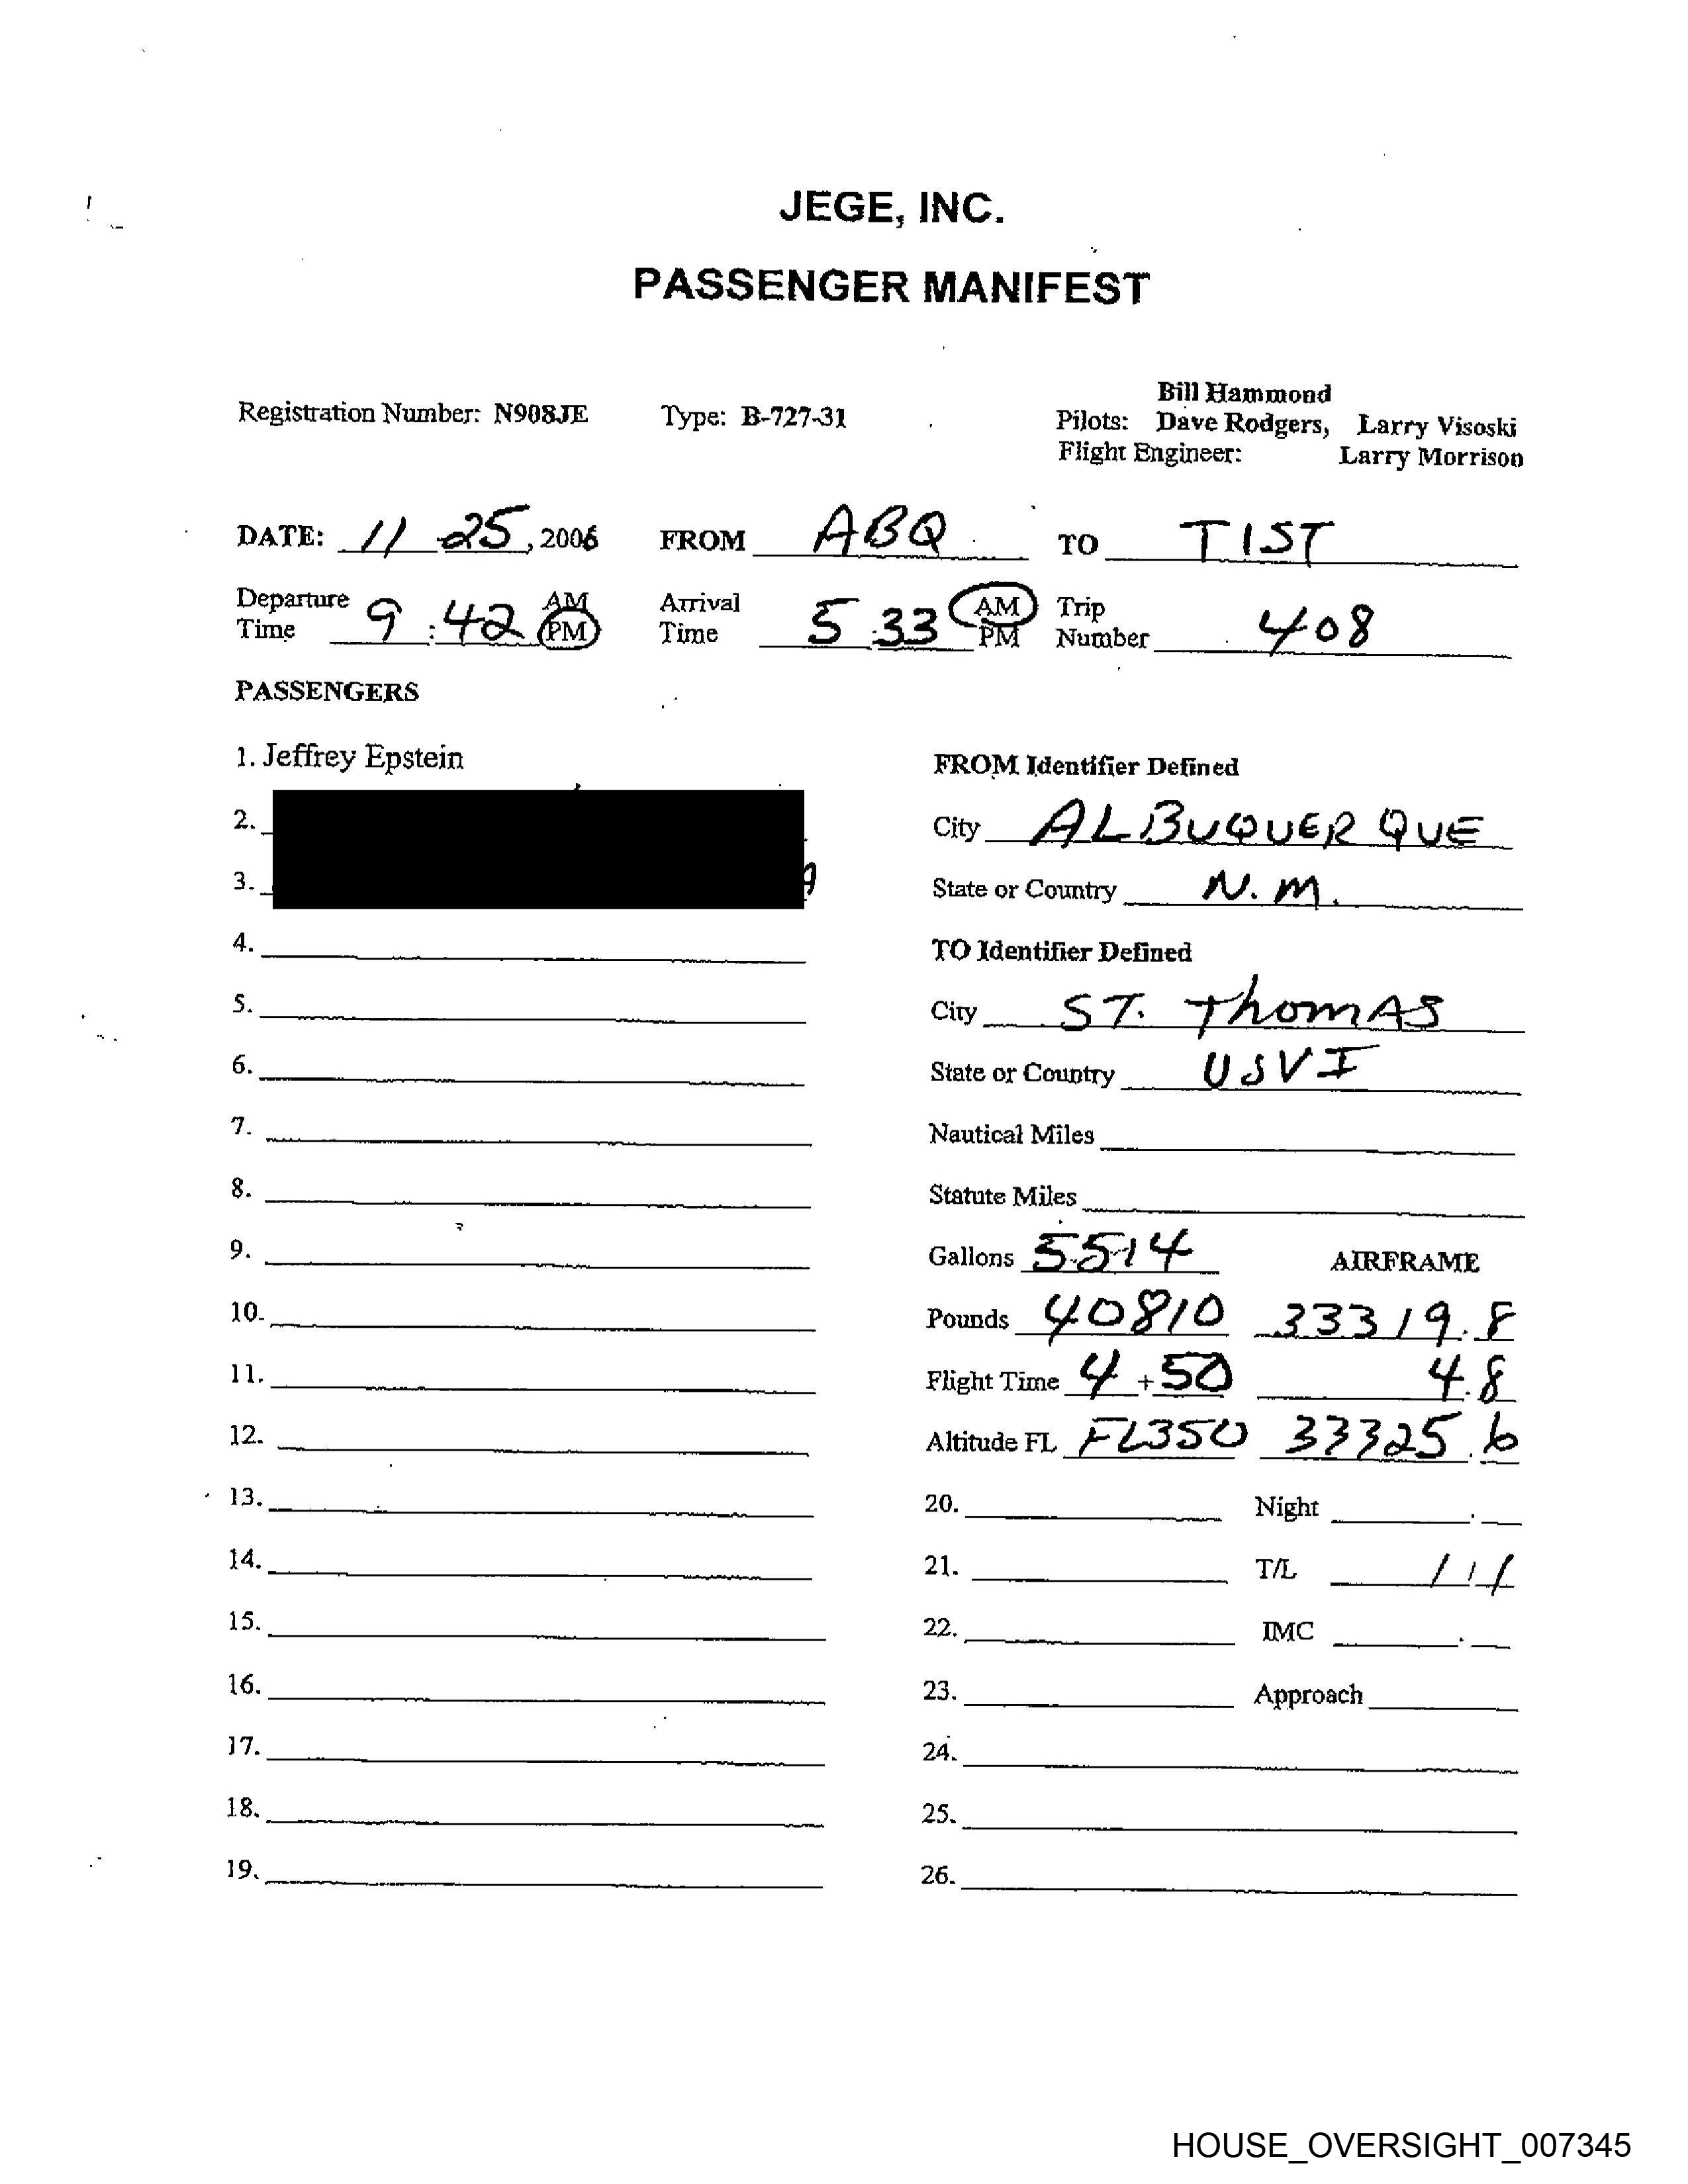 JEGE, INC.
PASSENGER MANIFEST
Bill Hammond
Registration Number: N908JE Type: B-727-31 Pilots: Dave Rodgers, Larry Visoski
Flight Engineer: Larry Morrison
DATE: 11 25, 2006 FROM ABQ TO TIST
Departure Time 9:42 AM PM Arrival Time 5:33 AM PM Trip Number 408
PASSENGERS
1. Jeffrey Epstein
2.
3.
4.
5.
6.
7.
8.
9.
10.
11.
12.
13.
14.
15.
16.
17.
18.
19.
FROM Identifier Defined
City ALBUQUERQUE
State or Country N.M.
TO Identifier Defined
City ST. ThomAS
State or Country USVI
Nautical Miles
Statute Miles
Gallons 5514 AIRFRAME
Pounds 40810 33319.8
Flight Time 4+50 4.8
Altitude FL FL350 33325.6
20. Night
21. T/L 1/1
22. IMC
23. Approach
24.
25.
26.
HOUSE_OVERSIGHT_007345